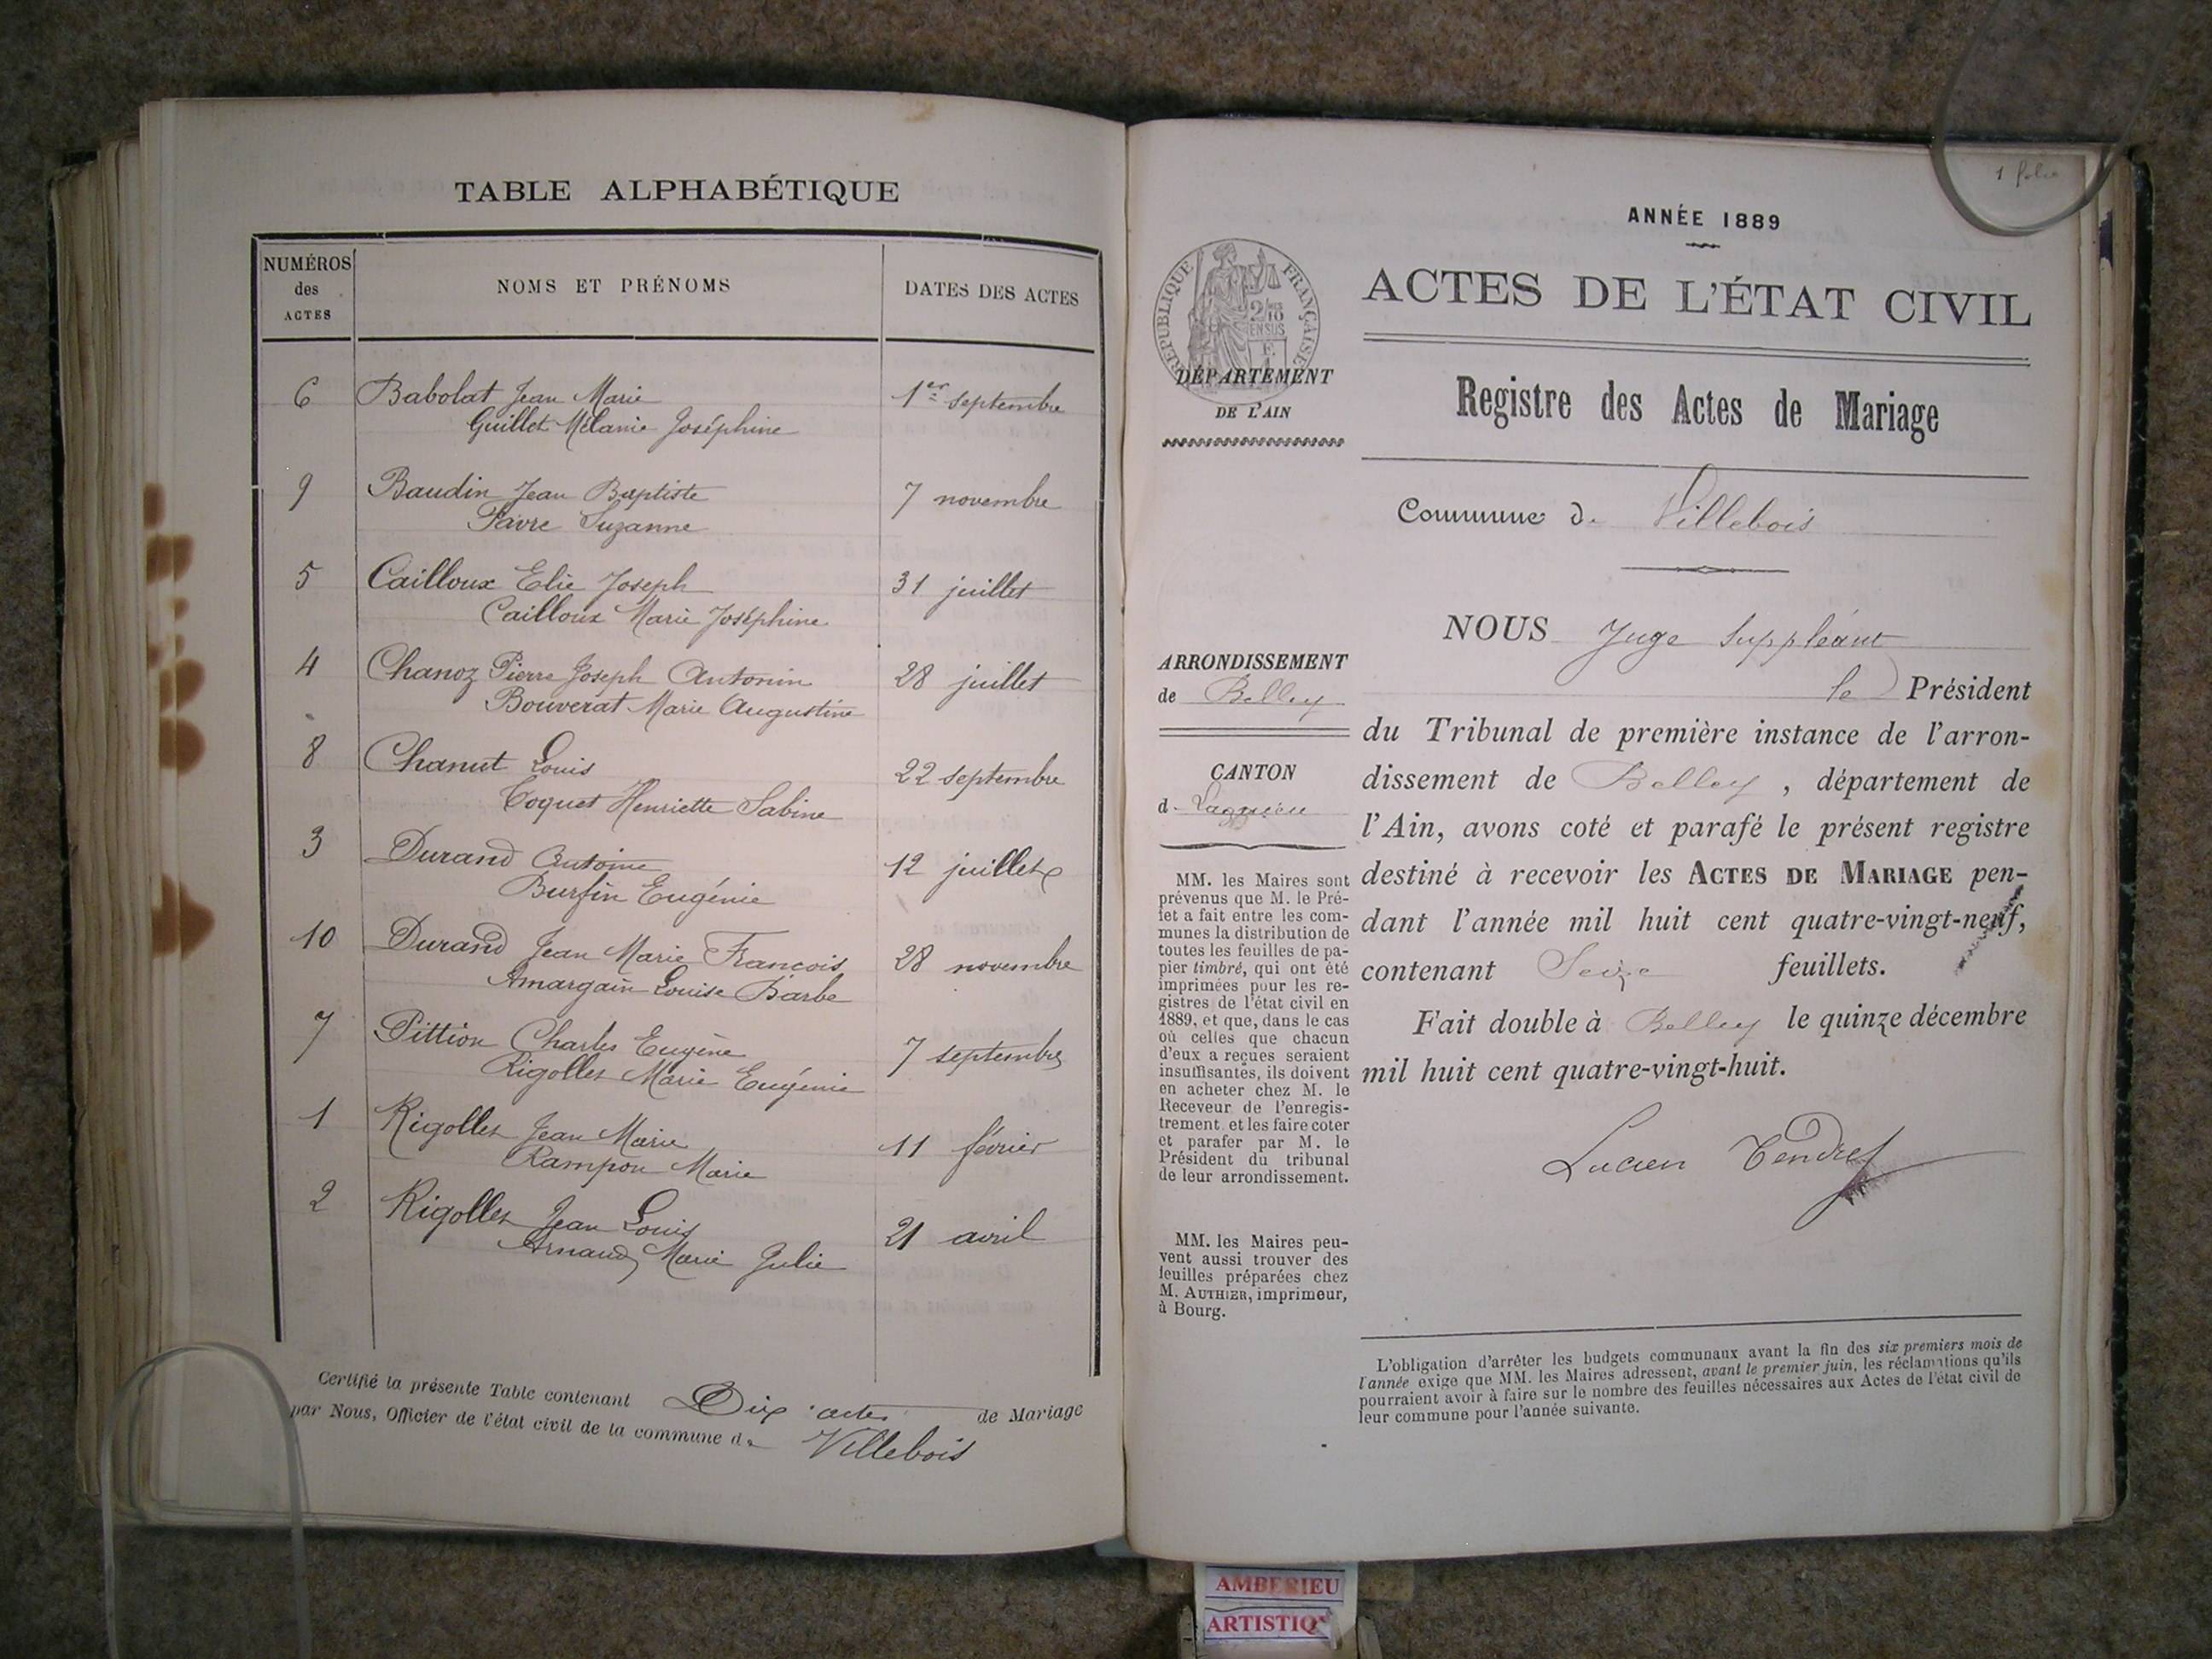 TABLE ALPHABÉTIQUE
NUMÉROS des ACTES
NOMS ET PRÉNOMS
DATES DES ACTES
6 Babolat Jean Marie 1er septembre
Guillet Mélanie Joséphine
9 Baudin Jean Baptiste 7 novembre
Favre Suzanne
5 Cailloux Elie Joseph 31 juillet
Cailloux Marie Joséphine
4 Chanoz Pierre Joseph Antonin 28 juillet
Bouverat Marie Augustine
8 Chanut Louis 22 septembre
Coquet Henriette Sabine
3 Durand Antoine 12 juillet
Burfin Eugénie
10 Durand Jean Marie François 28 novembre
Amargain Louise Barbe
7 Pittion Charles Eugène 7 septembre
Rigollet Marie Eugénie
1 Rigollet Jean Marie 11 février
Rampon Marie
2 Rigollet Jean Louis 21 avril
Arnaud Marie Julie
Certifié la présente Table contenant Dix actes de Mariage
par Nous, Officier de l'état civil de la commune de Villebois
1 folio
ANNÉE 1889
RÉPUBLIQUE FRANÇAISE
2/10 EN SUS
ACTES DE L'ÉTAT CIVIL
DÉPARTEMENT
DE L'AIN
Registre des Actes de Mariage
Commune de Villebois
NOUS Juge Suppléant
ARRONDISSEMENT
de Belley
le Président
du Tribunal de première instance de l'arron-
dissement de Belley, département de
l'Ain, avons coté et parafé le présent registre
destiné à recevoir les ACTES DE MARIAGE pen-
dant l'année mil huit cent quatre-vingt-neuf,
contenant Seize feuillets.
Fait double à Belley le quinze décembre
mil huit cent quatre-vingt-huit.
Lucien Tendret
CANTON
d. Lagnieu
MM. les Maires sont
prévenus que M. le Pré-
fet a fait entre les com-
munes la distribution de
toutes les feuilles de pa-
pier timbré, qui ont été
imprimées pour les re-
gistres de l'état civil en
1889, et que, dans le cas
où celles que chacun
d'eux a reçues seraient
insuffisantes, ils doivent
en acheter chez M. le
Receveur de l'enregis-
trement et les faire coter
et parafer par M. le
Président du tribunal
de leur arrondissement.
MM. les Maires peu-
vent aussi trouver des
feuilles préparées chez
M. AUTHIER, imprimeur,
à Bourg.
L'obligation d'arrêter les budgets communaux avant la fin des six premiers mois de
l'année exige que MM. les Maires adressent, avant le premier juin, les réclamations qu'ils
pourraient avoir à faire sur le nombre des feuilles nécessaires aux Actes de l'état civil de
leur commune pour l'année suivante.
AMBERIEU
ARTISTIQ